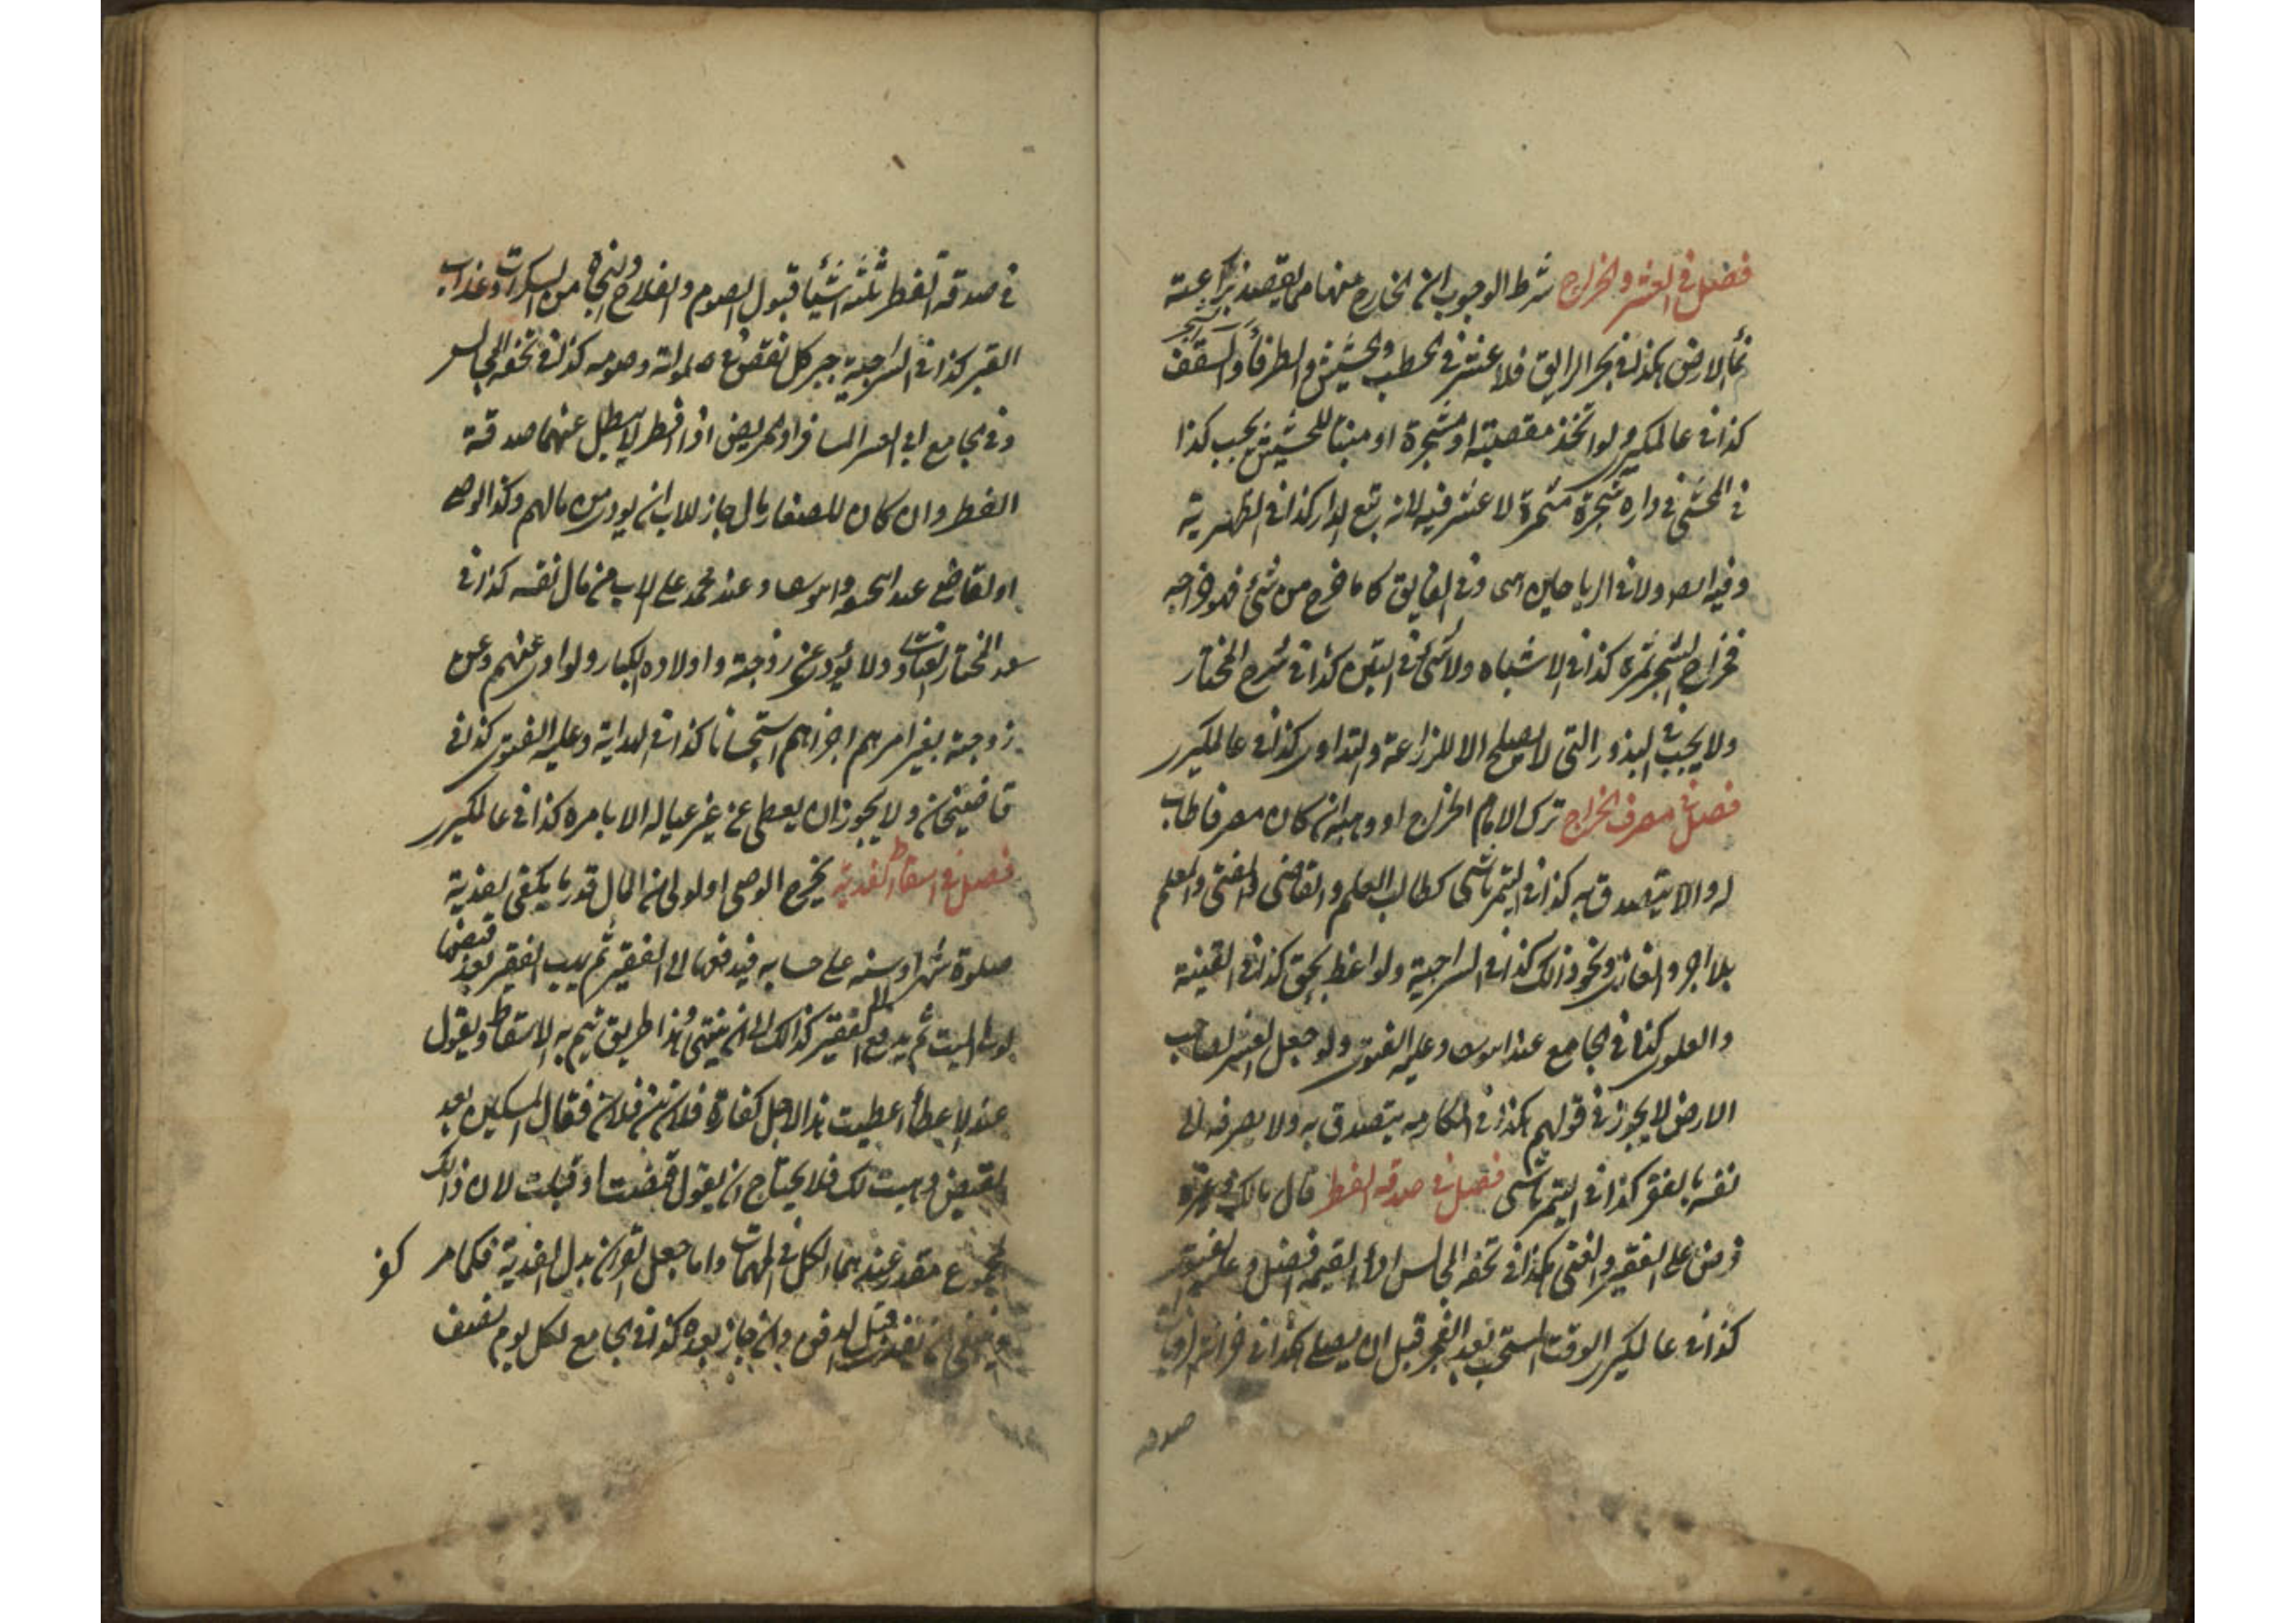 فصل في العشر والخراج شرط الوجوب ان الخارج منها مما يقصد بزراعته
نماء الارض هكذا في بحر الرايق فلا عشر في الحطب والحشيش والطرفاء والسعف
كذا في عالمكير ولو اتخذ مقصبة او مشجرة او منبتا للحشيش يجب كذا
في المحشي في داره شجرة مثمرة لا عشر فيه لانه تبع لدار كذا في الظهيرية
وفيه ولا في الرياحين وفي الفايق كل ما خرج من شئ فهو خراجه
فخراج الشجر ثمره كذا في الاشباه ولا شئ في التبن كذا في شرح المختار
ولا يجب في البذور التي لا يصلح الا للزراعة والتداوي كذا في عالمكير
فصل في مصرف الخراج ترك الامام الخراج او وهبه ان كان مصرفا طاب
له والا يتصدق به كذا في التمرتاشي كطالب العلم والقاضي والمفتي والمعلم
بلا اجر والغازي ونحو ذالك كذا في السراجية ولواعظ بحق كذا في القنية
والعلوي كذا في الجامع عند ابي يوسف وعليه الفتوى ولو جعل العشر لصاحب
الارض لا يجوز في قولهم هكذا في يتصدق به ولا يصرفه الى
نفسه بالفقر كذا في التمرتاشي فصل في صدقه الفطر قال مالك
فرض على الفقير والغني هكذا في تحفه المجالس اداء القيمه افضل وعليه الفتوى
كذا في عالمكير الوقت المستحب بعد الفجر قبل ان يصلي هكذا في
صدقه
في صدقة الفطر ثلثه اشياء قبول الصوم والفلاح والنجاة من السكرات وعذاب
القبر كذا في السراجية جبر كل نقص في صلواته وصومه كذا في تحفه المجالس
وفي الجامع المسافر او المريض اذا افطر لا يبطل عنهما صدقة
الفطر وان كان للصغار مال جاز للاب ان يودي من مالهم وكذا الوصي
او لقاضي عند ابي حنيفه وابي يوسف وعند محمد على الاب من مال نفسه كذا في
المختار الفتاوى ولا يؤدي عن زوجته واولاده الكبار ولو ادى عنهم وعن
زوجته بغير امرهم اجزاهم استحسانا كذا في الهداية وعليه الفتوى كذا في
قاضيخان ولا يجوز ان يعطى عن غير عياله الا بامره كذا في عالمكير
فصل في اسقاط الفدية يخرج الوصي او لولي من المال قدر ما يكفي لفدية
صلوة شهر او سنه على حسابه فيدفعها الى الفقير ثم يهب الفقير بعد قبضها
لوارث الميت ثم يدفع الى الفقير كذالك الى ان ينتهي وهذا طريق يتم به الاسقاط ويقول
عند الاعطاء اعطيت هذا لاجل كفارة فلان بن فلان فقال المسكين بعد
القبض وهبت لك فلا يحتاج ان يقول قبضت او قبلت لان ذالك
مجموع مقدر عندهما الكل في المهمات واما جعل القران بدل الفدية فكما مر
وينبغي ان قبل الدفن وان جاز بعده كذا في الجامع لكل يوم نصف